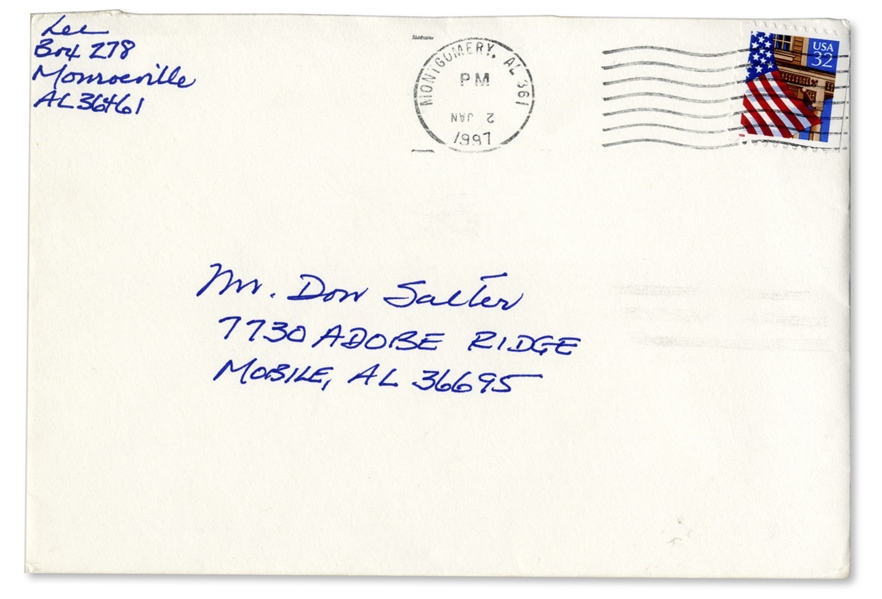 Lee
Box 278
Monroeville
AL 36461
MONTGOMERY, AL 361
PM
2 JAN
1997
USA
32
Mr. Don Salter
7730 ADOBE RIDGE
MOBILE, AL 36695